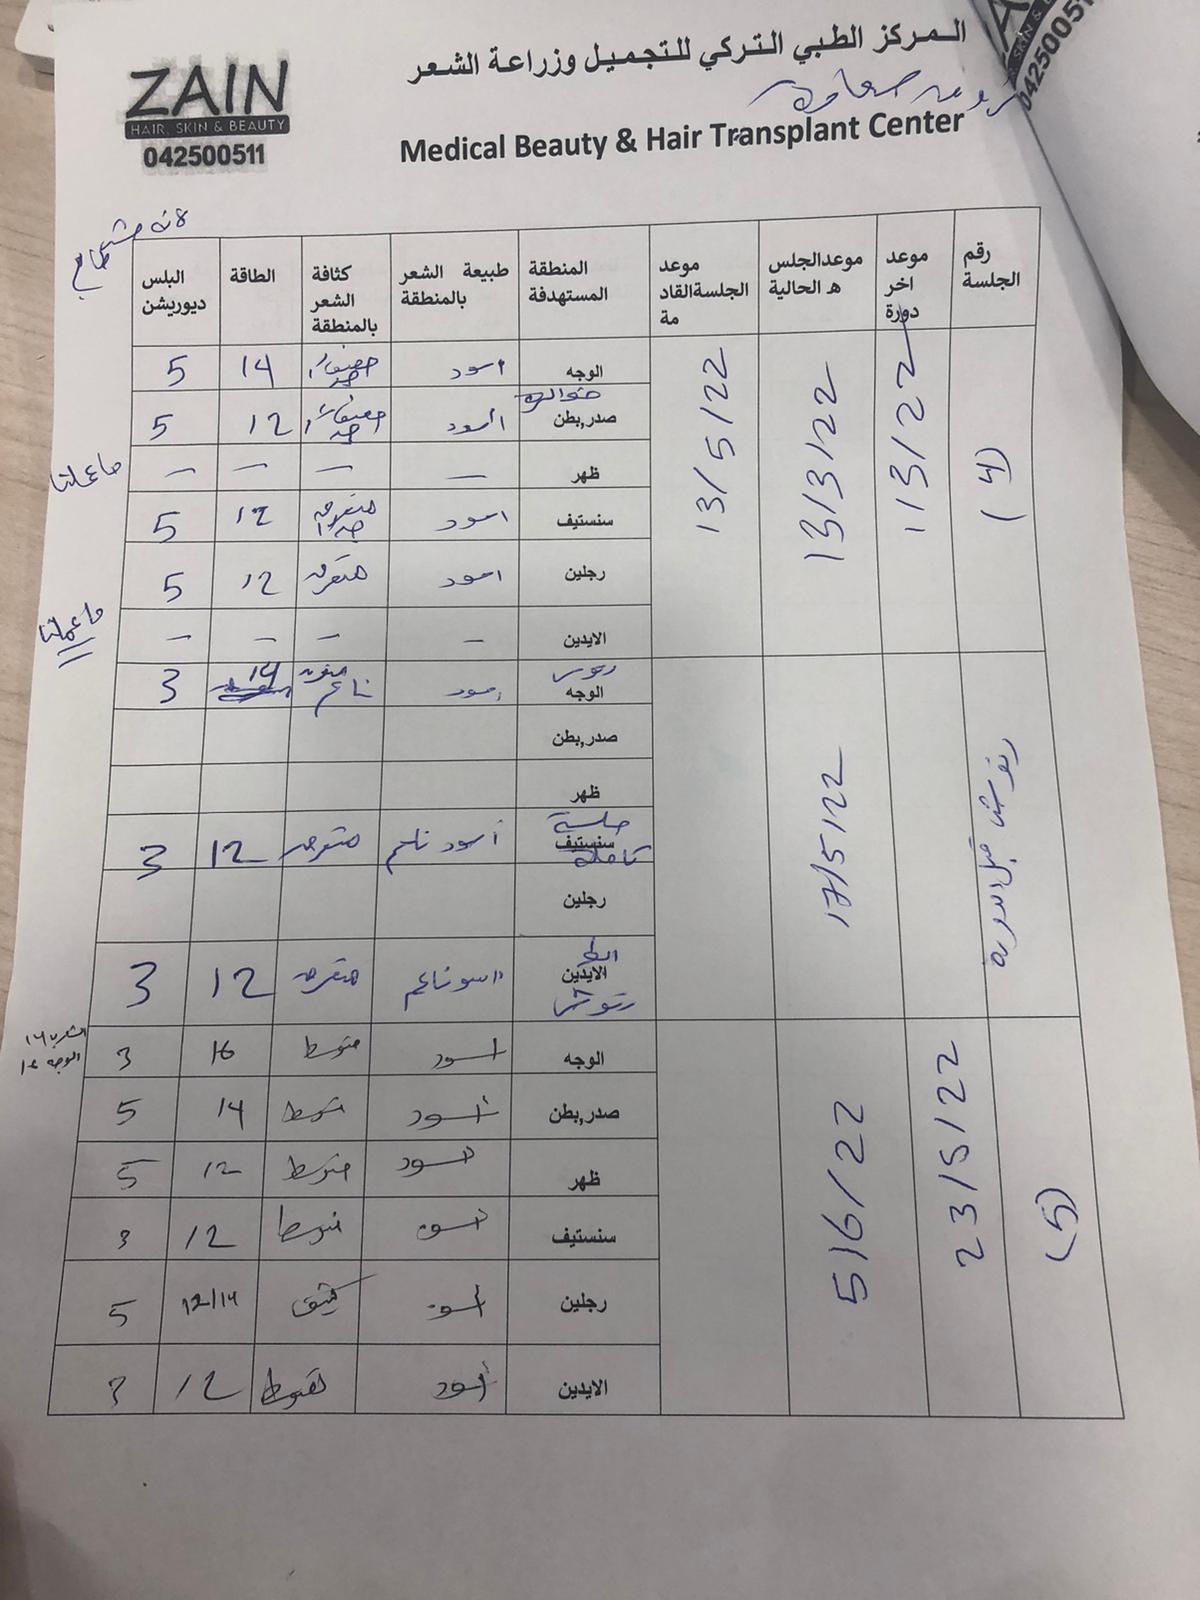 ZAIN
HAIR, SKIN & BEAUTY
042500511
المركز الطبي التركي للتجميل وزراعة الشعر
Medical Beauty & Hair Transplant Center
رقم الجلسة
موعد اخر دورة
موعدالجلس هـ الحالية
موعد الجلسةالقاد مة
المنطقة المستهدفة
طبيعة الشعر بالمنطقة
كثافة الشعر بالمنطقة
الطاقة
البلس ديوريشن
(4)
1/3/22
13/3/22
13/5/22
الوجه اسود 14 5
صدر,بطن اسود 12 5
ظهر – – – –
ما عملنا
سنستيف اسود متفرقه جدا 12 5
رجلين اسود متفرقه 12 5
الايدين – – – –
ما عملتا
رتوش قبل الدورة
17/5/22
الوجه اسود ناعم 14 3
صدر,بطن
ظهر
جلسة سنستيف كاملة أسود ناعم متفرقه 12 3
رجلين
الايدين رتوش اسود ناعم متفرقه 12 3
(5)
23/5/22
5/6/22
الوجه اسود متوسط 16 3
الوجه 14
صدر,بطن أسود متوسط 14 5
ظهر اسود متوسط 12 5
سنستيف اسود متوسط 12 3
رجلين اسود كثيف 12/14 5
الايدين أسود متوسط 12 3